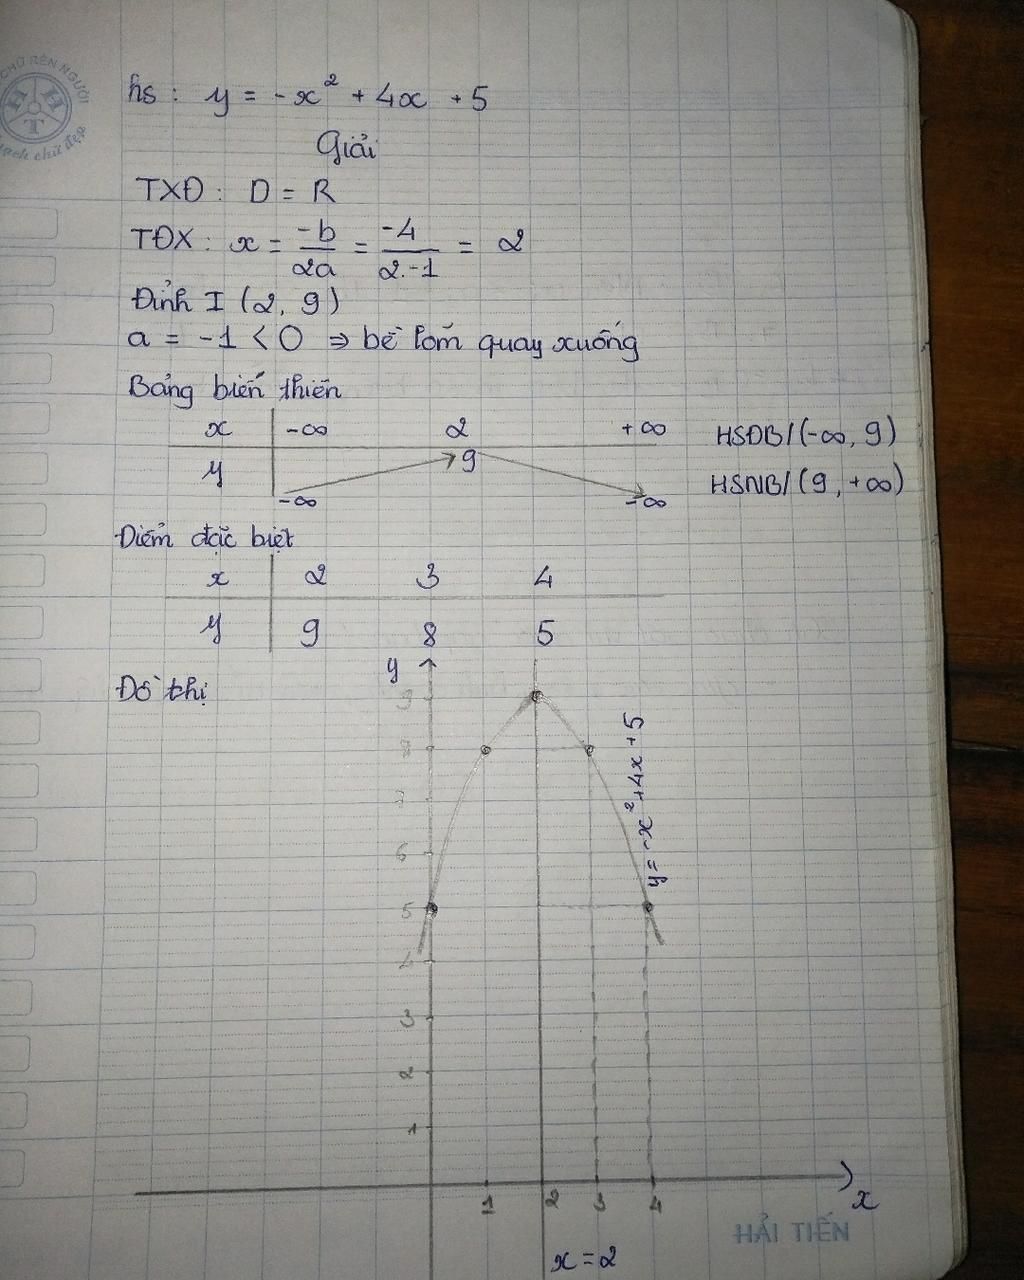 CHỮ RÈN NGƯỜI
H H
T
sạch chữ đẹp
hs : y = -x² + 4x + 5
Giải
TXĐ : D = R
TĐX : x = -b/2a = -4/2.-1 = 2
Đỉnh I (2, 9)
a = -1 < 0 => bề lõm quay xuống
Bảng biến thiên
x -∞ 2 +∞ HSĐB/(-∞, 9)
y 9 HSNB/(9, +∞)
-∞ -∞
Điểm đặc biệt
x 2 3 4
y 9 8 5
Đồ thị
y
9
8
7
6
5
4
3
2
1
y = -x² + 4x + 5
1 2 3 4 x
x = 2
HẢI TIẾN